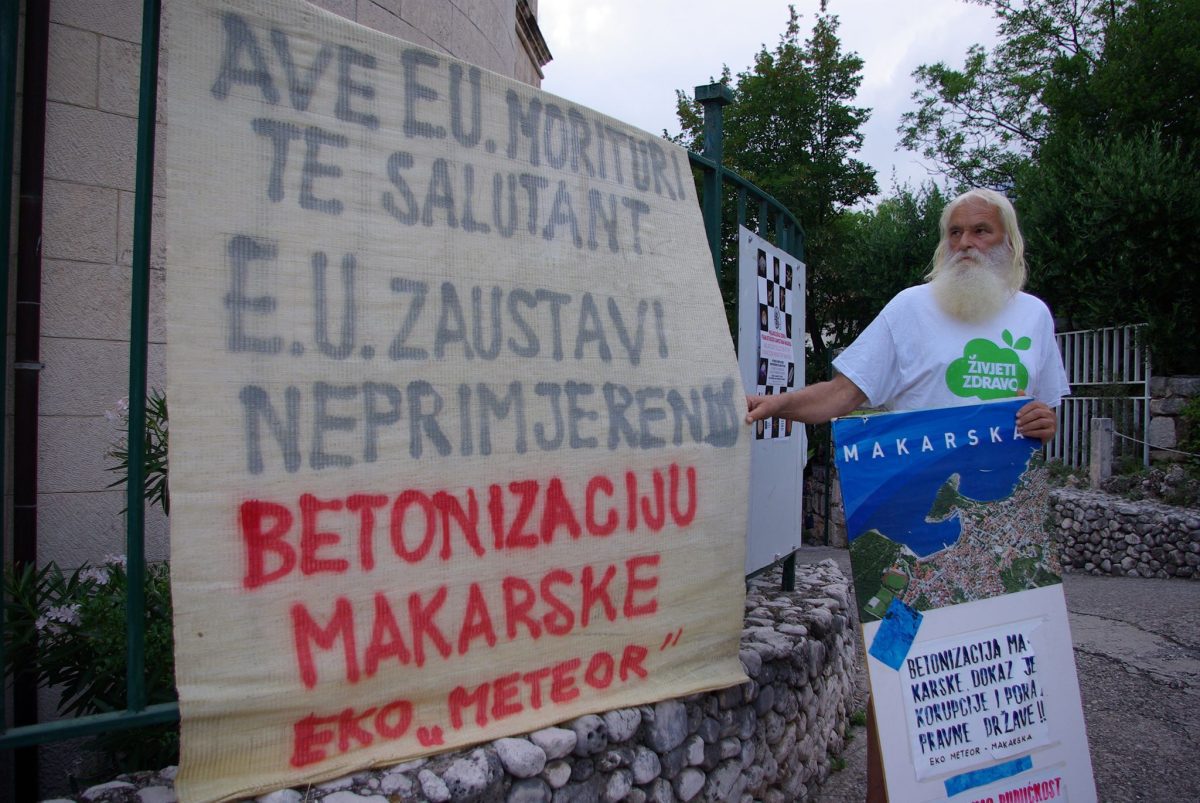 AVE EU. MORITURI
TE SALUTANT
E.U. ZAUSTAVI
NEPRIMJERENU
BETONIZACIJU
MAKARSKE
EKO „METEOR”
ŽIVJETI
ZDRAVO
MAKARSKA
BETONIZACIJA MA-
KARSKE, DOKAZ JE
KORUPCIJE I PORAZ
PRAVNE DRŽAVE!!
EKO METEOR - MAKARSKA
BUDUĆNOST